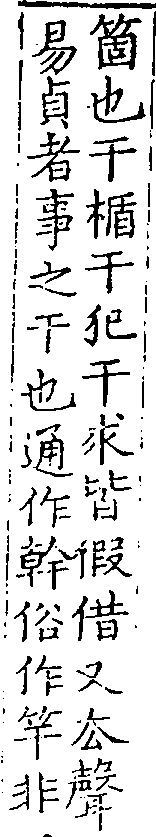 箇也干楯干犯干求皆假借又厺聲
易貞者事之干也通作幹俗作竿非